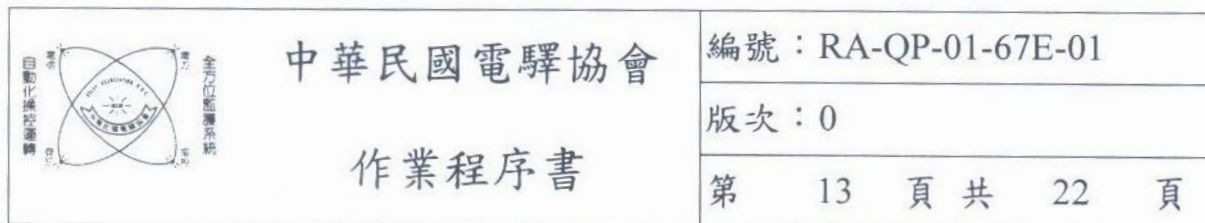 自動化操控運轉
全方位監護系統
中華民國電驛協會
作業程序書
編號：RA-QP-01-67E-01
版次：0
第 13 頁 共 22 頁